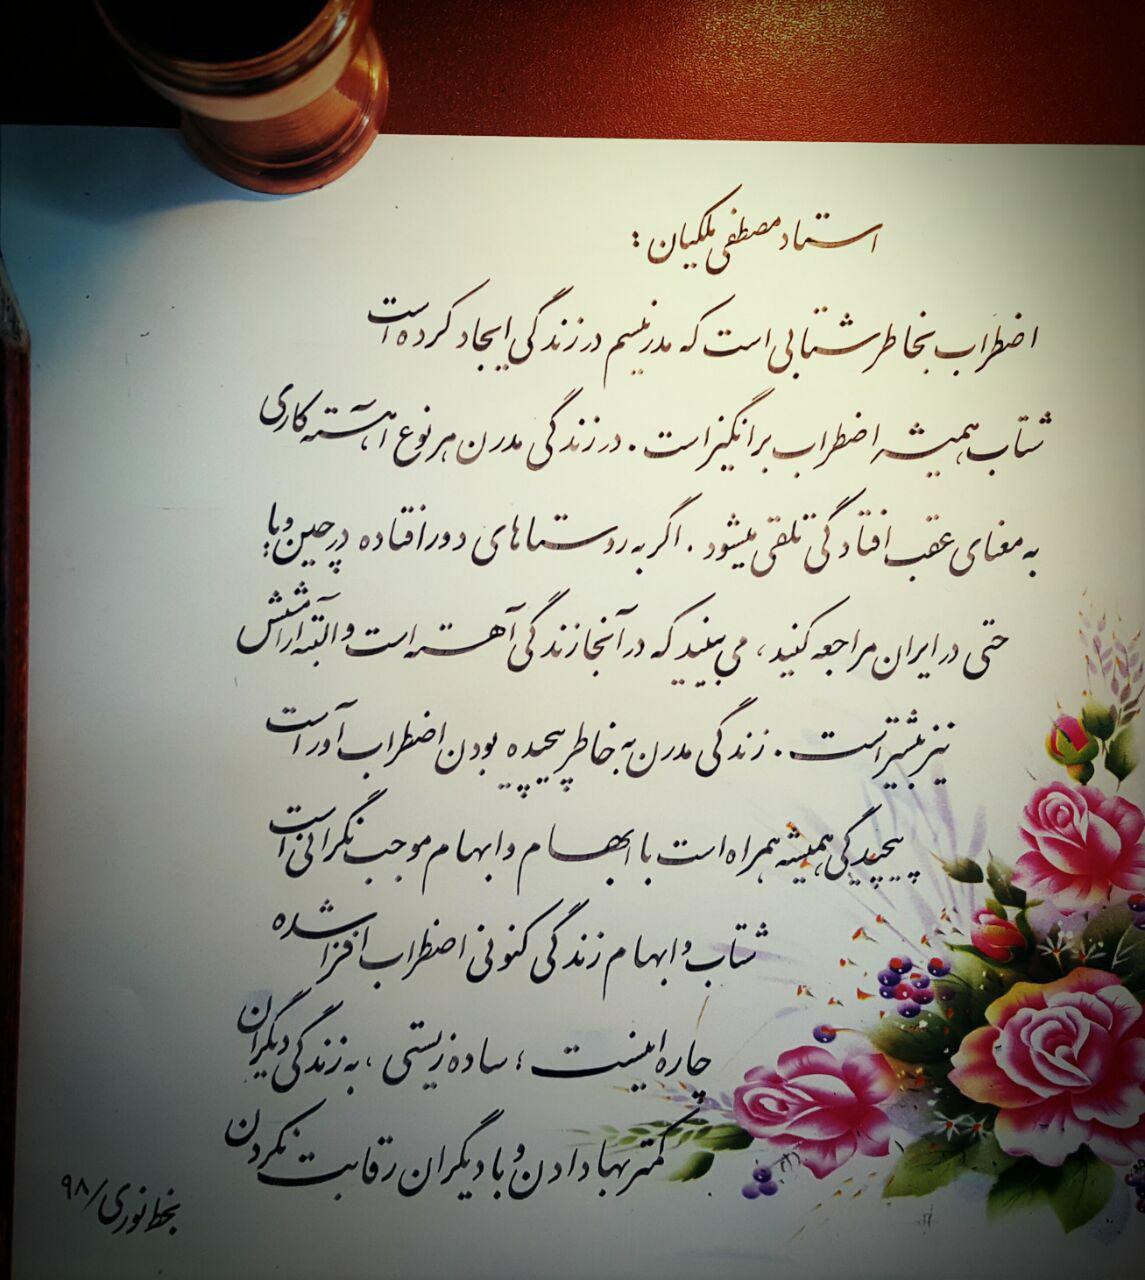 استاد مصطفی ملکیان :
اضطراب بخاطر شتابی است که مدرنیسم در زندگی ایجاد کرده است
شتاب همیشه اضطراب برانگیز است . در زندگی مدرن هر نوع آهسته کاری
به معنای عقب افتادگی تلقی میشود . اگر به روستاهای دور افتاده در چین و یا
حتی در ایران مراجعه کنید ، می بینید که در آنجا زندگی آهسته است و البته آرامشش
نیز بیشتر است . زندگی مدرن به خاطر پیچیده بودن اضطراب آور است
پیچیدگی همیشه همراه است با ابهام و ابهام موجب نگرانی است
شتاب و ابهام زندگی کنونی اضطراب افزا شده
چاره اینست ؛ ساده زیستی ، به زندگی دیگران
کمتر بها دادن و با دیگران رقابت نکردن
بخط نوری / ۹۸